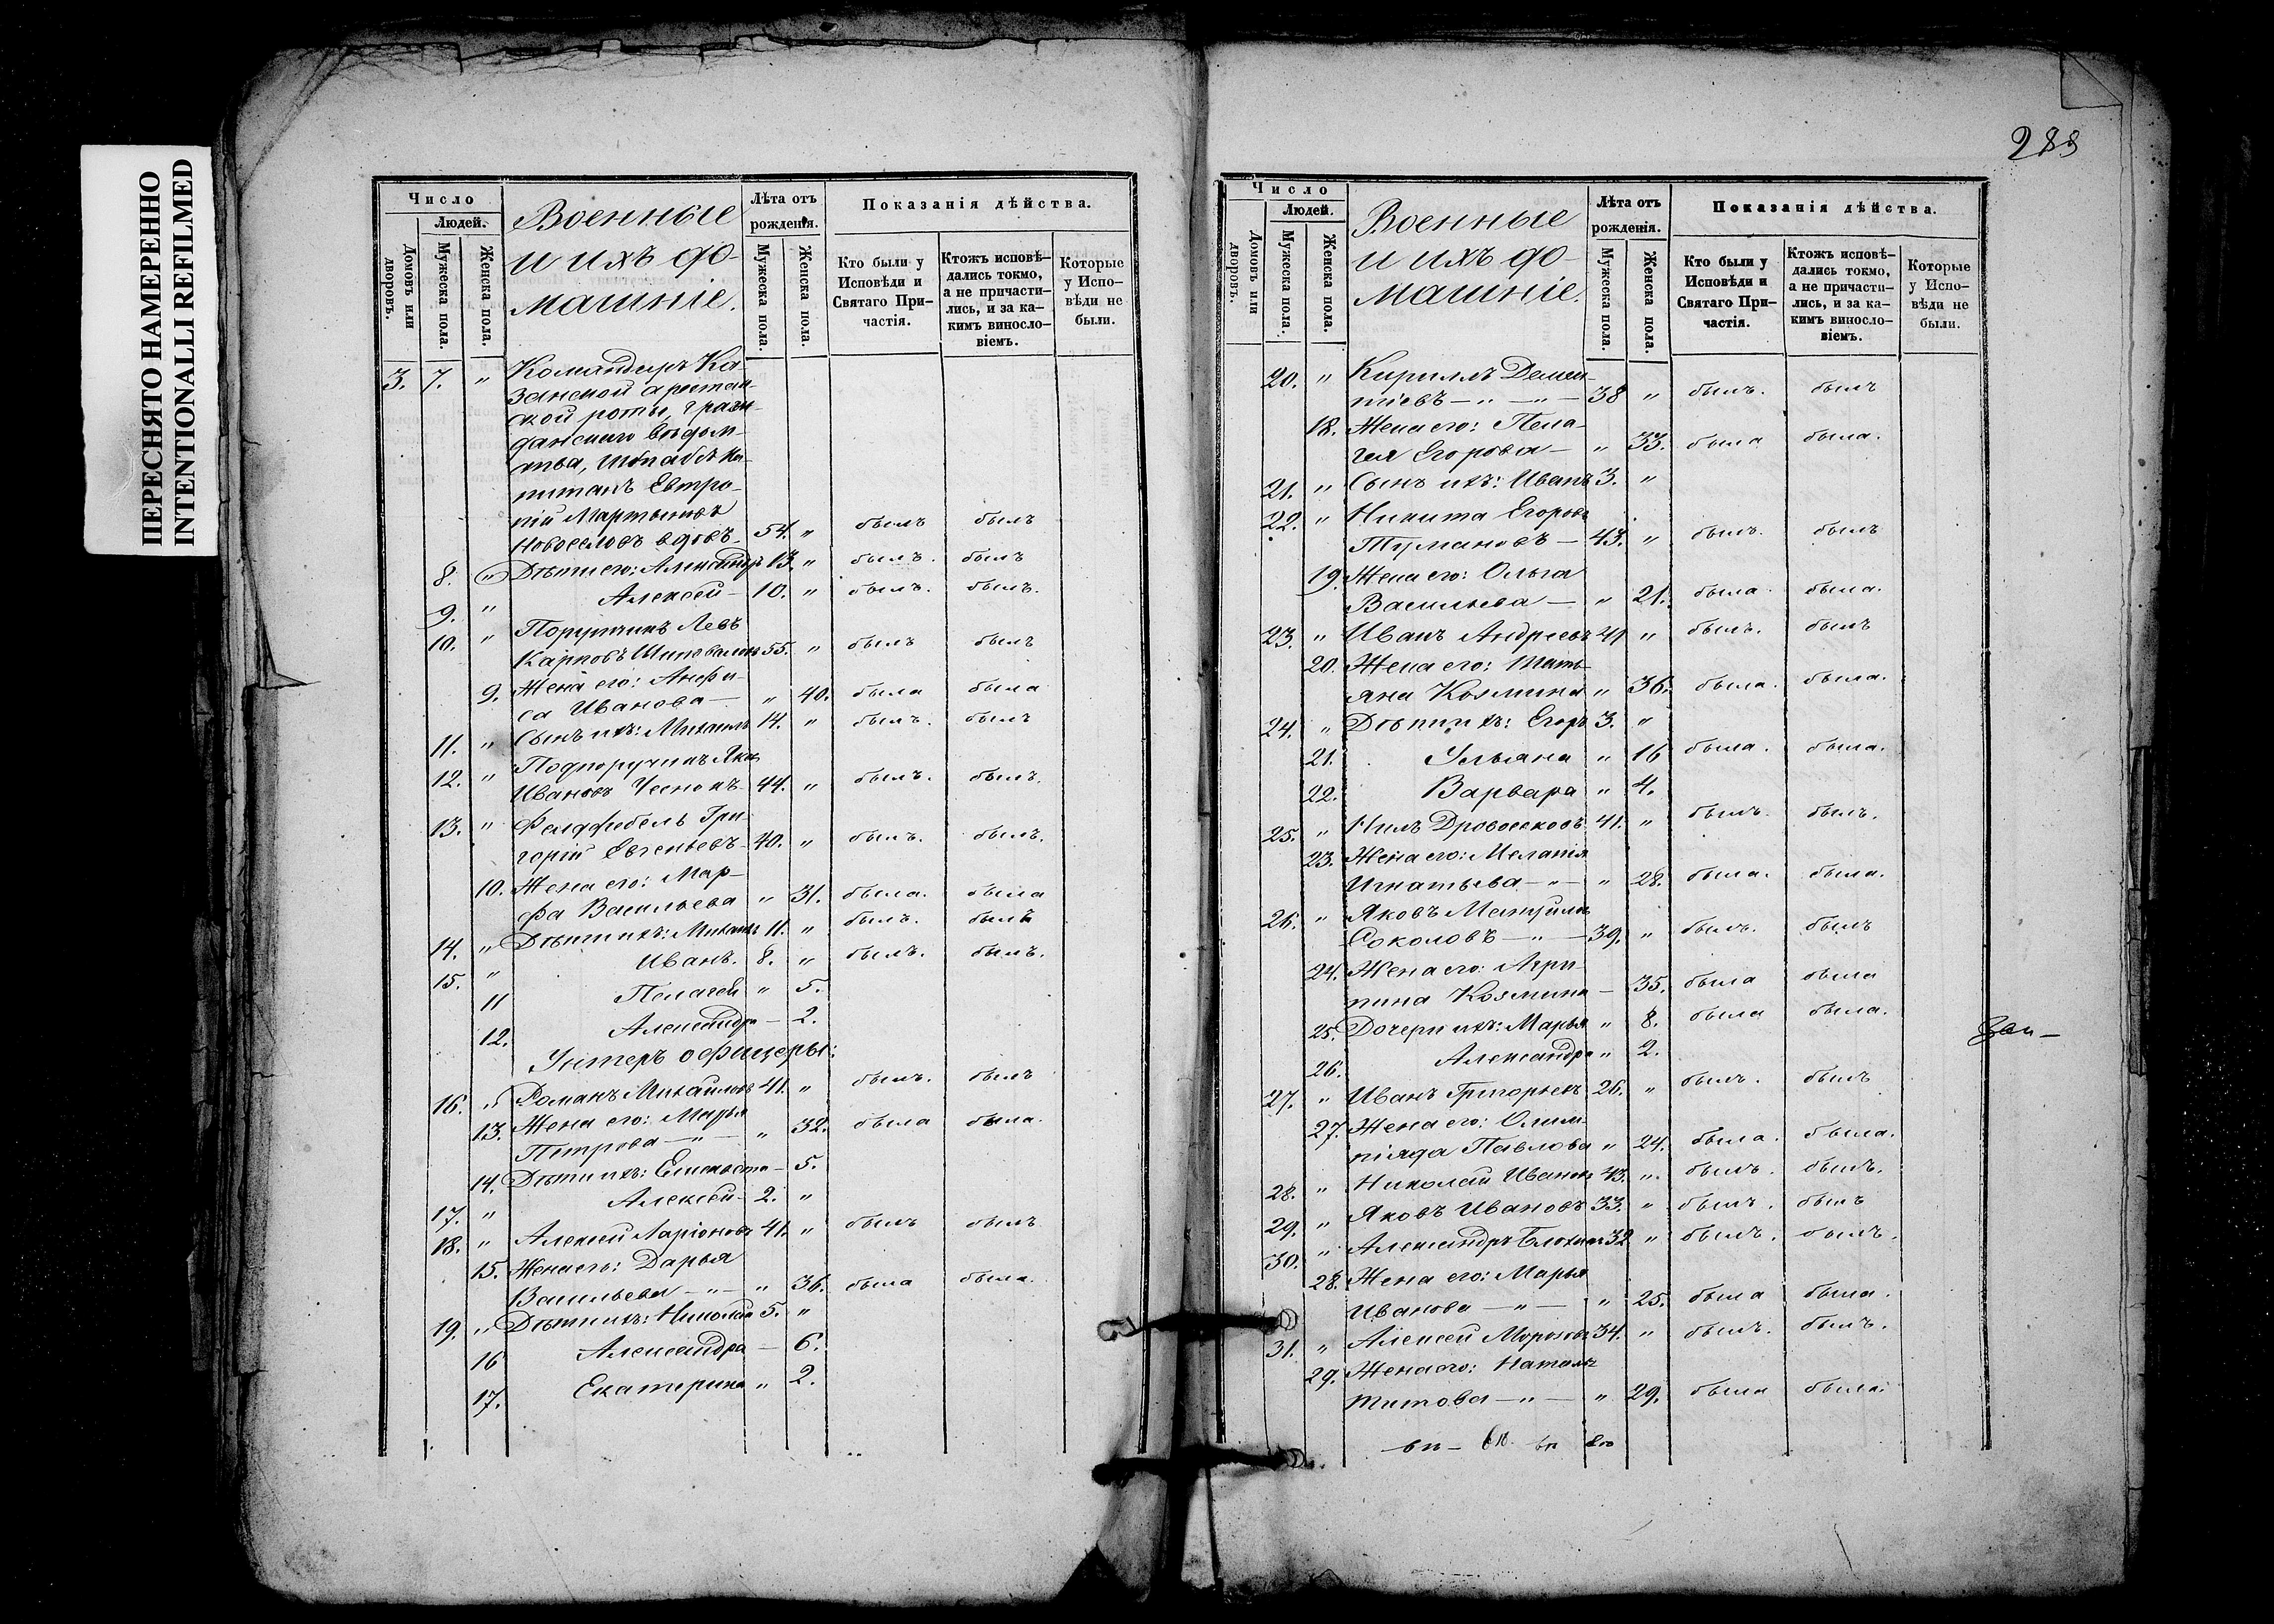 ПЕРЕСНЯТО НАМЕРЕННО
INTENTIONALLI REFILMED
Число
Людей.
Домовъ или дворовъ.
Мужеска пола.
Женска пола.
Военные
и ихъ до-
машніе.
Лѣта отъ
рожденія.
Мужеска пола.
Женска пола.
Показанія дѣйства.
Кто были у
Исповѣди и
Святаго При-
частія.
Ктожъ исповѣ-
дались токмо,
а не причасти-
лись, и за ка-
кимъ винослo-
віемъ.
Которые
у Испо-
вѣди не
были.
3. 7. " Командиръ Ка-
занской арестан-
ской роты, граж-
данскаго вѣдом-
ства, Штабсъ Ка-
питанъ Евтро-
пій Мартыновъ
Новоселовъ вдовъ. 54. " былъ былъ
8. " Дѣти его: Александръ 13. " былъ. былъ
9. " Алексей 10. " былъ. былъ.
10. " Поручикъ Левъ
Карповъ 55. " былъ былъ
9. Жена его: Анфи-
са Иванова — " 40. была была
11. " Сынъ ихъ: Михаилъ 14. " былъ. былъ
12. " Подпоручикъ Яковъ
Ивановъ Чеснокъ 44. " былъ. былъ.
13. " Фелдфебель Гри-
горій Евгеньевъ 40. " былъ. былъ.
10. Жена его: Мар-
фа Васильева " 31. была. была
14. " Дѣти ихъ: Михаилъ 11. " былъ. былъ
15. " Иванъ. 8. " былъ. былъ.
11 Пелагея " 5.
12. Александра — 2.
Унтеръ офицеры:
16. " Романъ Михаиловъ 41. " былъ. былъ
13. Жена его: Марья
Петрова — " — " 32. была была.
14. Дѣти ихъ: Елисавета — 5.
17. " Алексей 2. "
18. " Алексей Ларіоновъ 41. " былъ былъ
15. Жена его: Дарья
Васильева — " — " 36. была была.
19. " Дѣти ихъ: Николай 5. "
16 Александра — 6.
17. Екатерина " 2.
Число
Людей.
Домовъ или дворовъ.
Мужеска пола.
Женска пола.
Военные
и ихъ до-
машніе.
Лѣта отъ
рожденія.
Мужеска пола.
Женска пола.
Показанія дѣйства.
Кто были у
Исповѣди и
Святаго При-
частія.
Ктожъ исповѣ-
дались токмо,
а не причасти-
лись, и за ка-
кимъ винослo-
віемъ.
Которые
у Испо-
вѣди не
были.
20. " Кириллъ Демен-
тіевъ — " — " — 38 " былъ. былъ
18. Жена его: Пела-
гея Егорова — " 33. была была.
21. " Сынъ ихъ: Иванъ 3. "
22. " Никита Егоровъ
Тумановъ — 43. " былъ. былъ
19. Жена его: Ольга
Васильева — " 21. была. была.
23. " Иванъ Андреевъ 41 " былъ. былъ
20. Жена его: Тать-
яна Козмина " 36. была. была.
24. " Дѣти ихъ: Егоръ 3. "
21. Ульяна " 16 была. была.
22. Варвара " 4.
25. " Нилъ Дровосековъ 41. " былъ. былъ.
23. Жена его: Меланія
Игнатьева — " — " 28. была. была.
26. " Яковъ
Соколовъ — " — 39. " былъ. былъ
24. Жена его: Агри-
пина Козмина — 35. была была
25. Дочери ихъ: Марья " 8. была была.
26. Александра " 2.
27. " Иванъ Григорьевъ 26. " былъ. былъ
27. Жена его: Олим-
піяда Павлова " 24. была. была.
28. " Николай Ивановъ 43. " былъ. былъ.
29. " Яковъ Ивановъ 33. " былъ. былъ
30. " Александръ Блохинъ 32 " былъ. былъ.
28. Жена его: Марья
Иванова — " — " 25. была была.
31. " Алексей Морозовъ 34. " былъ. былъ.
29. Жена его: Наталья
Титова — " — " 29. была была.